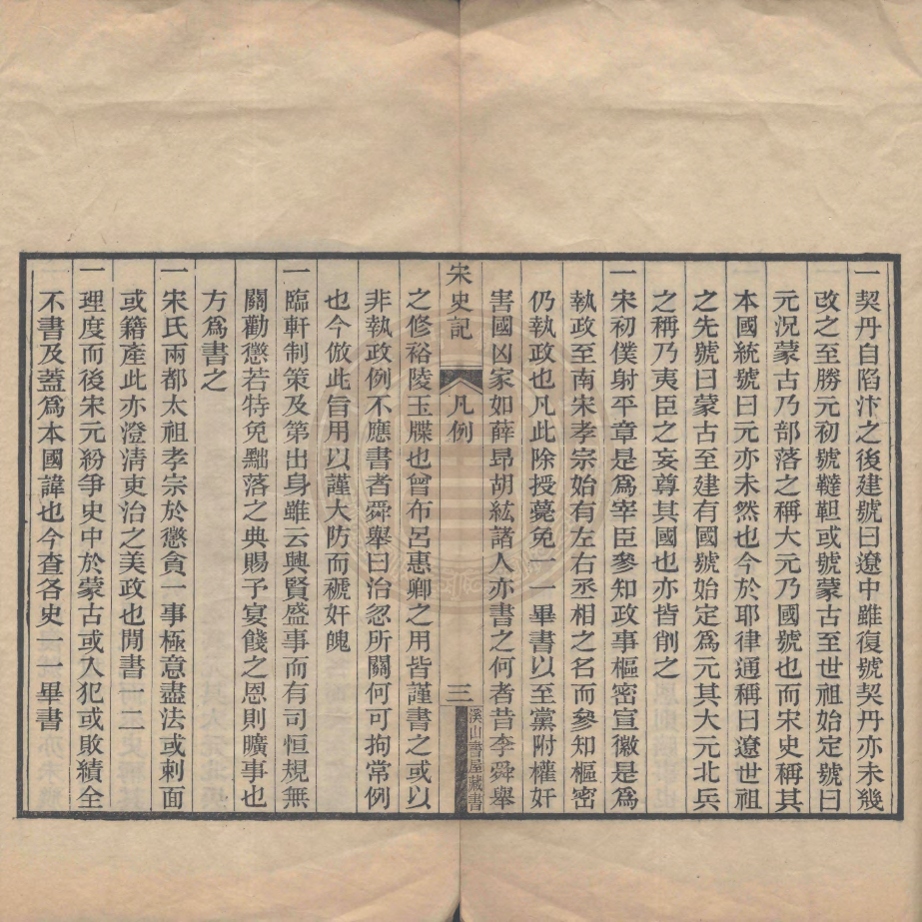 一契丹自陷汴之後建號曰遼中雖復號契丹亦未幾
改之至勝元初號韃靼或號蒙古至世祖始定號曰
元況蒙古乃部落之稱大元乃國號也而宋史稱其
本國統號曰元亦未然也今於耶律通稱曰遼世祖
之先號曰蒙古至建有國號始定爲元其大元北兵
之稱乃夷臣之妄尊其國也亦皆削之
一宋初僕射平章是爲宰臣參知政事樞密宣徽是爲
執政至南宋孝宗始有左右丞相之名而參知樞密
仍執政也凡此除授薨免一一畢書以至黨附權奸
害國凶家如薛昂胡紘諸人亦書之何者昔李舜舉
宋史記
凡例
三
溪山書屋藏書
之修裕陵玉牒也曾布呂惠卿之用皆謹書之或以
非執政例不應書者舜舉曰治忽所關何可拘常例
也今倣此旨用以謹大防而褫奸魄
一臨軒制策及第出身雖云興賢盛事而有司恒規無
關勸懲若特免黜落之典賜予宴餞之恩則曠事也
方爲書之
一宋氏兩都太祖孝宗於懲貪一事極意盡法或刺面
或籍產此亦澄清吏治之美政也閒書一二
一理度而後宋元紛爭史中於蒙古或入犯或敗績全
不書及蓋爲本國諱也今查各史一一畢書